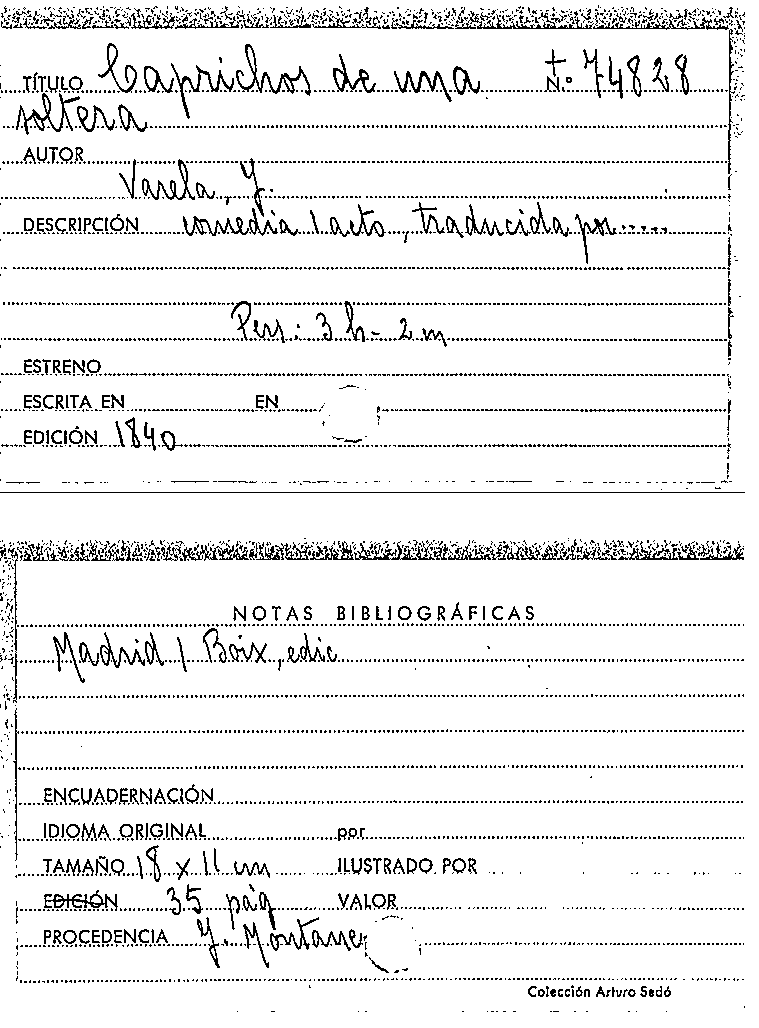 TÍTULO Caprichos de una N.º 74828
soltera
AUTOR
Varela, J.
DESCRIPCIÓN comedia 1 acto, traducida por.....
Pers: 3 h - 2 m
ESTRENO
ESCRITA EN EN
EDICIÓN 1840
NOTAS BIBLIOGRÁFICAS
Madrid / Boix, edic
ENCUADERNACIÓN
IDIOMA ORIGINAL por
TAMAÑO 18 x 11 cm ILUSTRADO POR
EDICIÓN 35 pág VALOR
PROCEDENCIA J. Montaner
Colección Arturo Sedó